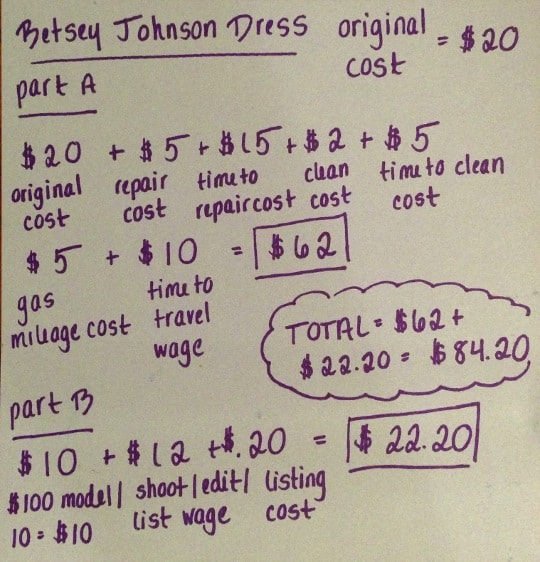 Betsey Johnson Dress
original cost = $20
part A
$20 + $5 + $15 + $2 + $5
original cost
repair cost
time to repair cost
clean cost
time to clean cost
$5 + $10 = $62
gas mileage cost
time to travel wage
TOTAL = $62 +
$22.20 = $84.20
part B
$10 + $12 + $.20 = $22.20
$100 model/
10 = $10
shoot/edit/
list wage
listing
cost